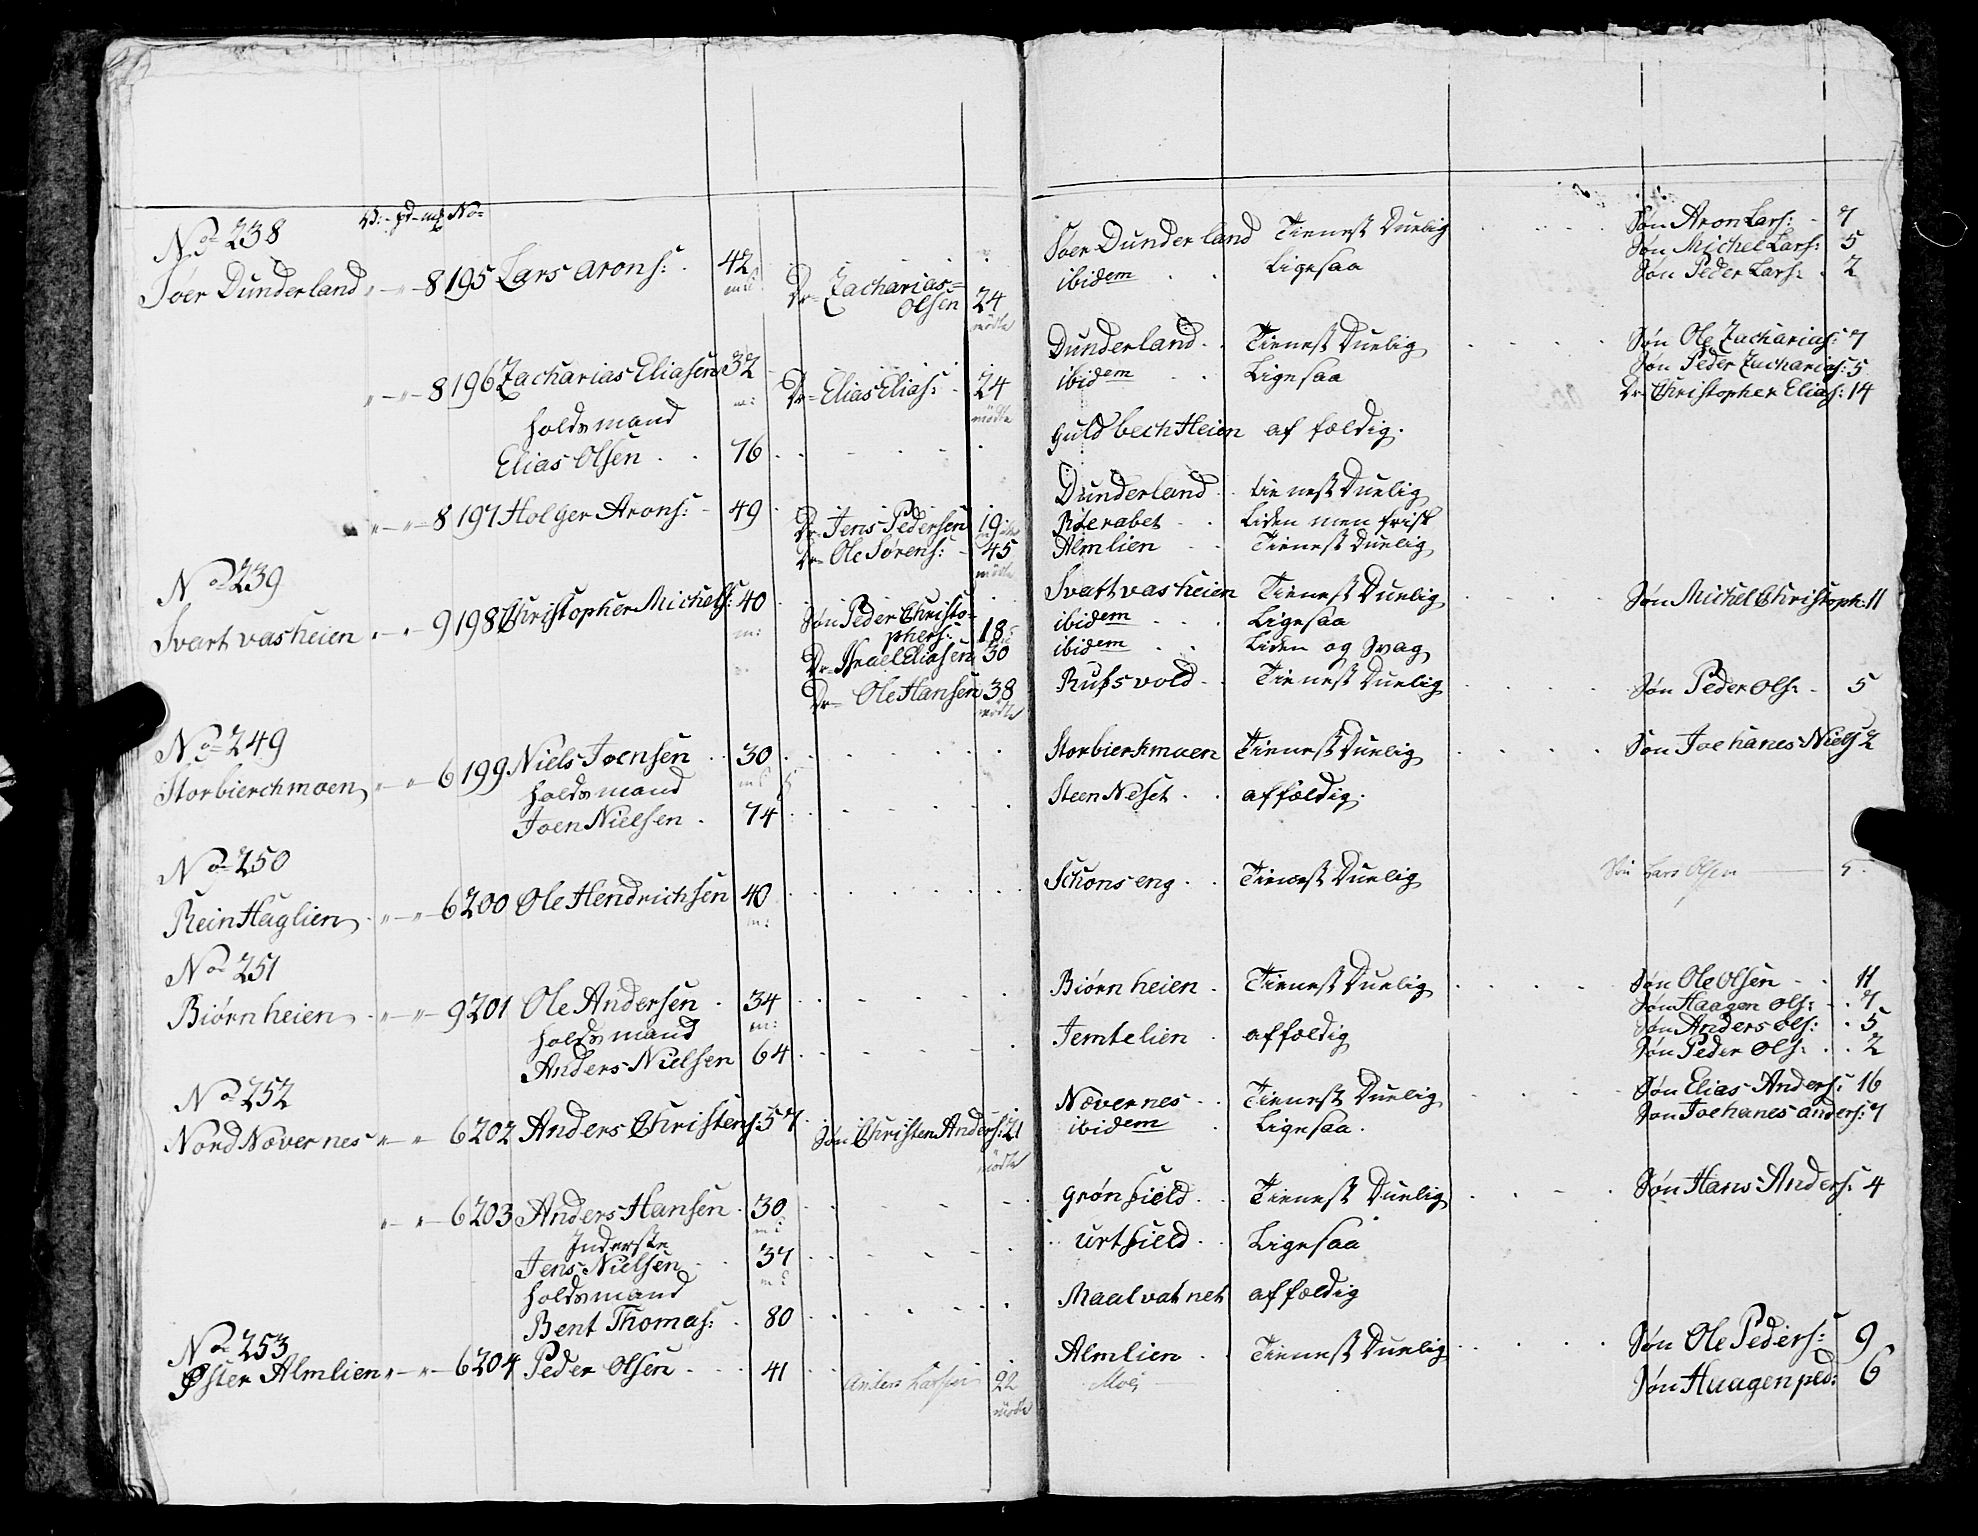 V: pd mk No=
No 238
Søer Dunderland " — " — 8 195 Lars Arons: 42 Søer Dunderland Tienest Duelig Søn Aron Lars: 7
Søn Michel Lars: 5
Dr= Zacharias= ibidem Ligesaa Søn Peder Lars: 2
Olsen 24
mödte
" — " — 8 196 Zacharias Eliasen 32 Dunderland Tienest Duelig Søn Ole Zacharias: 7
m: Dr= Elias Elias: 24 ibidem Ligesaa Søn Peder Zacharias: 5
mödte Dr= Christopher Elias: 14
Holds mand
Elias Olsen 76 Guldbech Heien affældig.
" — " — 8 197 Holger Arons: 49 Dunderland tienest Duelig
Dr= Jens Pedersen 19 Røerabet Liden men frisk
Dr= Ole Sørens: 45 Almlien Tienest Duelig
mödte
No 239
Svart vasheien " — " 9 198 Christopher Michels: 40 Svattvasheien Tienest Duelig Søn Michel Christoph: 11
m: Søn Peder Christo=
phers: 18 ibidem Ligesaa
Dr= Israel Eliasen 30 ibidem Liden og Svag
Dr= Ole Hansen 38 Rufsvold Tienest Duelig Søn Peder Ols: 5
mödte
No 249
Storbierchmoen " — " 6 199 Niels Joensen 30 Storbierkmoen Tienest Duelig Søn Joehanes Niels 2
Holds mand
Joen Nielsen 74 Steen Neset affældig.
No 250
Rein Haglien " — " — 6 200 Ole Hendrichsen 40 Schonseng Tienest Duelig Søn Lars Olsen 5
m:
No 251
Biørn heien " — " — 9 201 Ole Andersen 34 Biørn heien Tienest Duelig Søn Ole Olsen 11
m: Søn Haagen Ols: 7
Holds mand Søn Anders Ols: 5
Anders Nielsen 64 Jemtelien affældig Søn Peder Ols: 2
No 252
Nord Næver nes " — " 6 202 Anders Christens: 57 Nævernes Tienest Duelig Søn Elias Anders: 16
Søn Christen Anders: 21 ibidem Ligesaa. Søn Joehanes Anders: 7
mödte
" — " — 6 203 Anders Hansen 30 Grønfield Tienest Duelig Søn Hans Anders: 4
Inderste
Jens Nielsen 37 Urtfield Ligesaa
Holds mand
Bent Thomas: 80 Maalvatnet affældig
No 253
Øster Almlien " — " — 6 204 Peder Olsen 41 Almlien Tienest Duelig Søn Ole Peders: 9
Anders Larsen 22 Moe Søn Haagen ped: 6
mödte